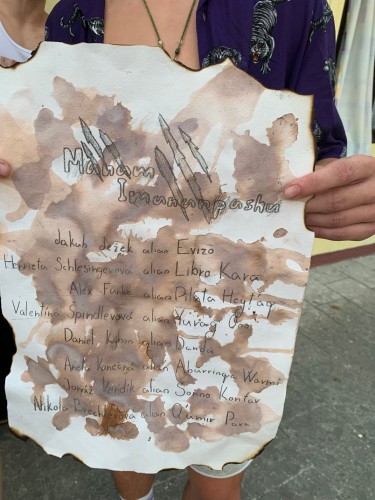 Maham
Imananpashu
Jakub Ježek alian Evizo
Henrieta Schlesingerová alian Libro Kara
Alex Funke alian Pilsta Heytay
Valentina Špindlevová alian Yuray
Daniel alian Danda
Aneta Konečná alian Aburringia Warmi
Jonáš Vondík alian Somno Kontar
Nikola alian Qumir Para